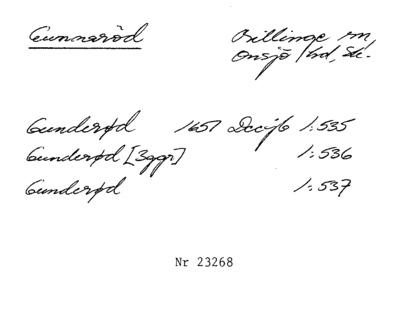 Gunnaröd Billinge sn,
Onsjö hd, Sk.
Gunderød 1657 Decijb 1:535
Gunderød [3ggr] 1:536
Gunderød 1:537
Nr 23268